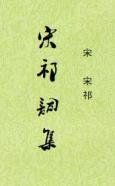 宋祁词集
宋 宋祁